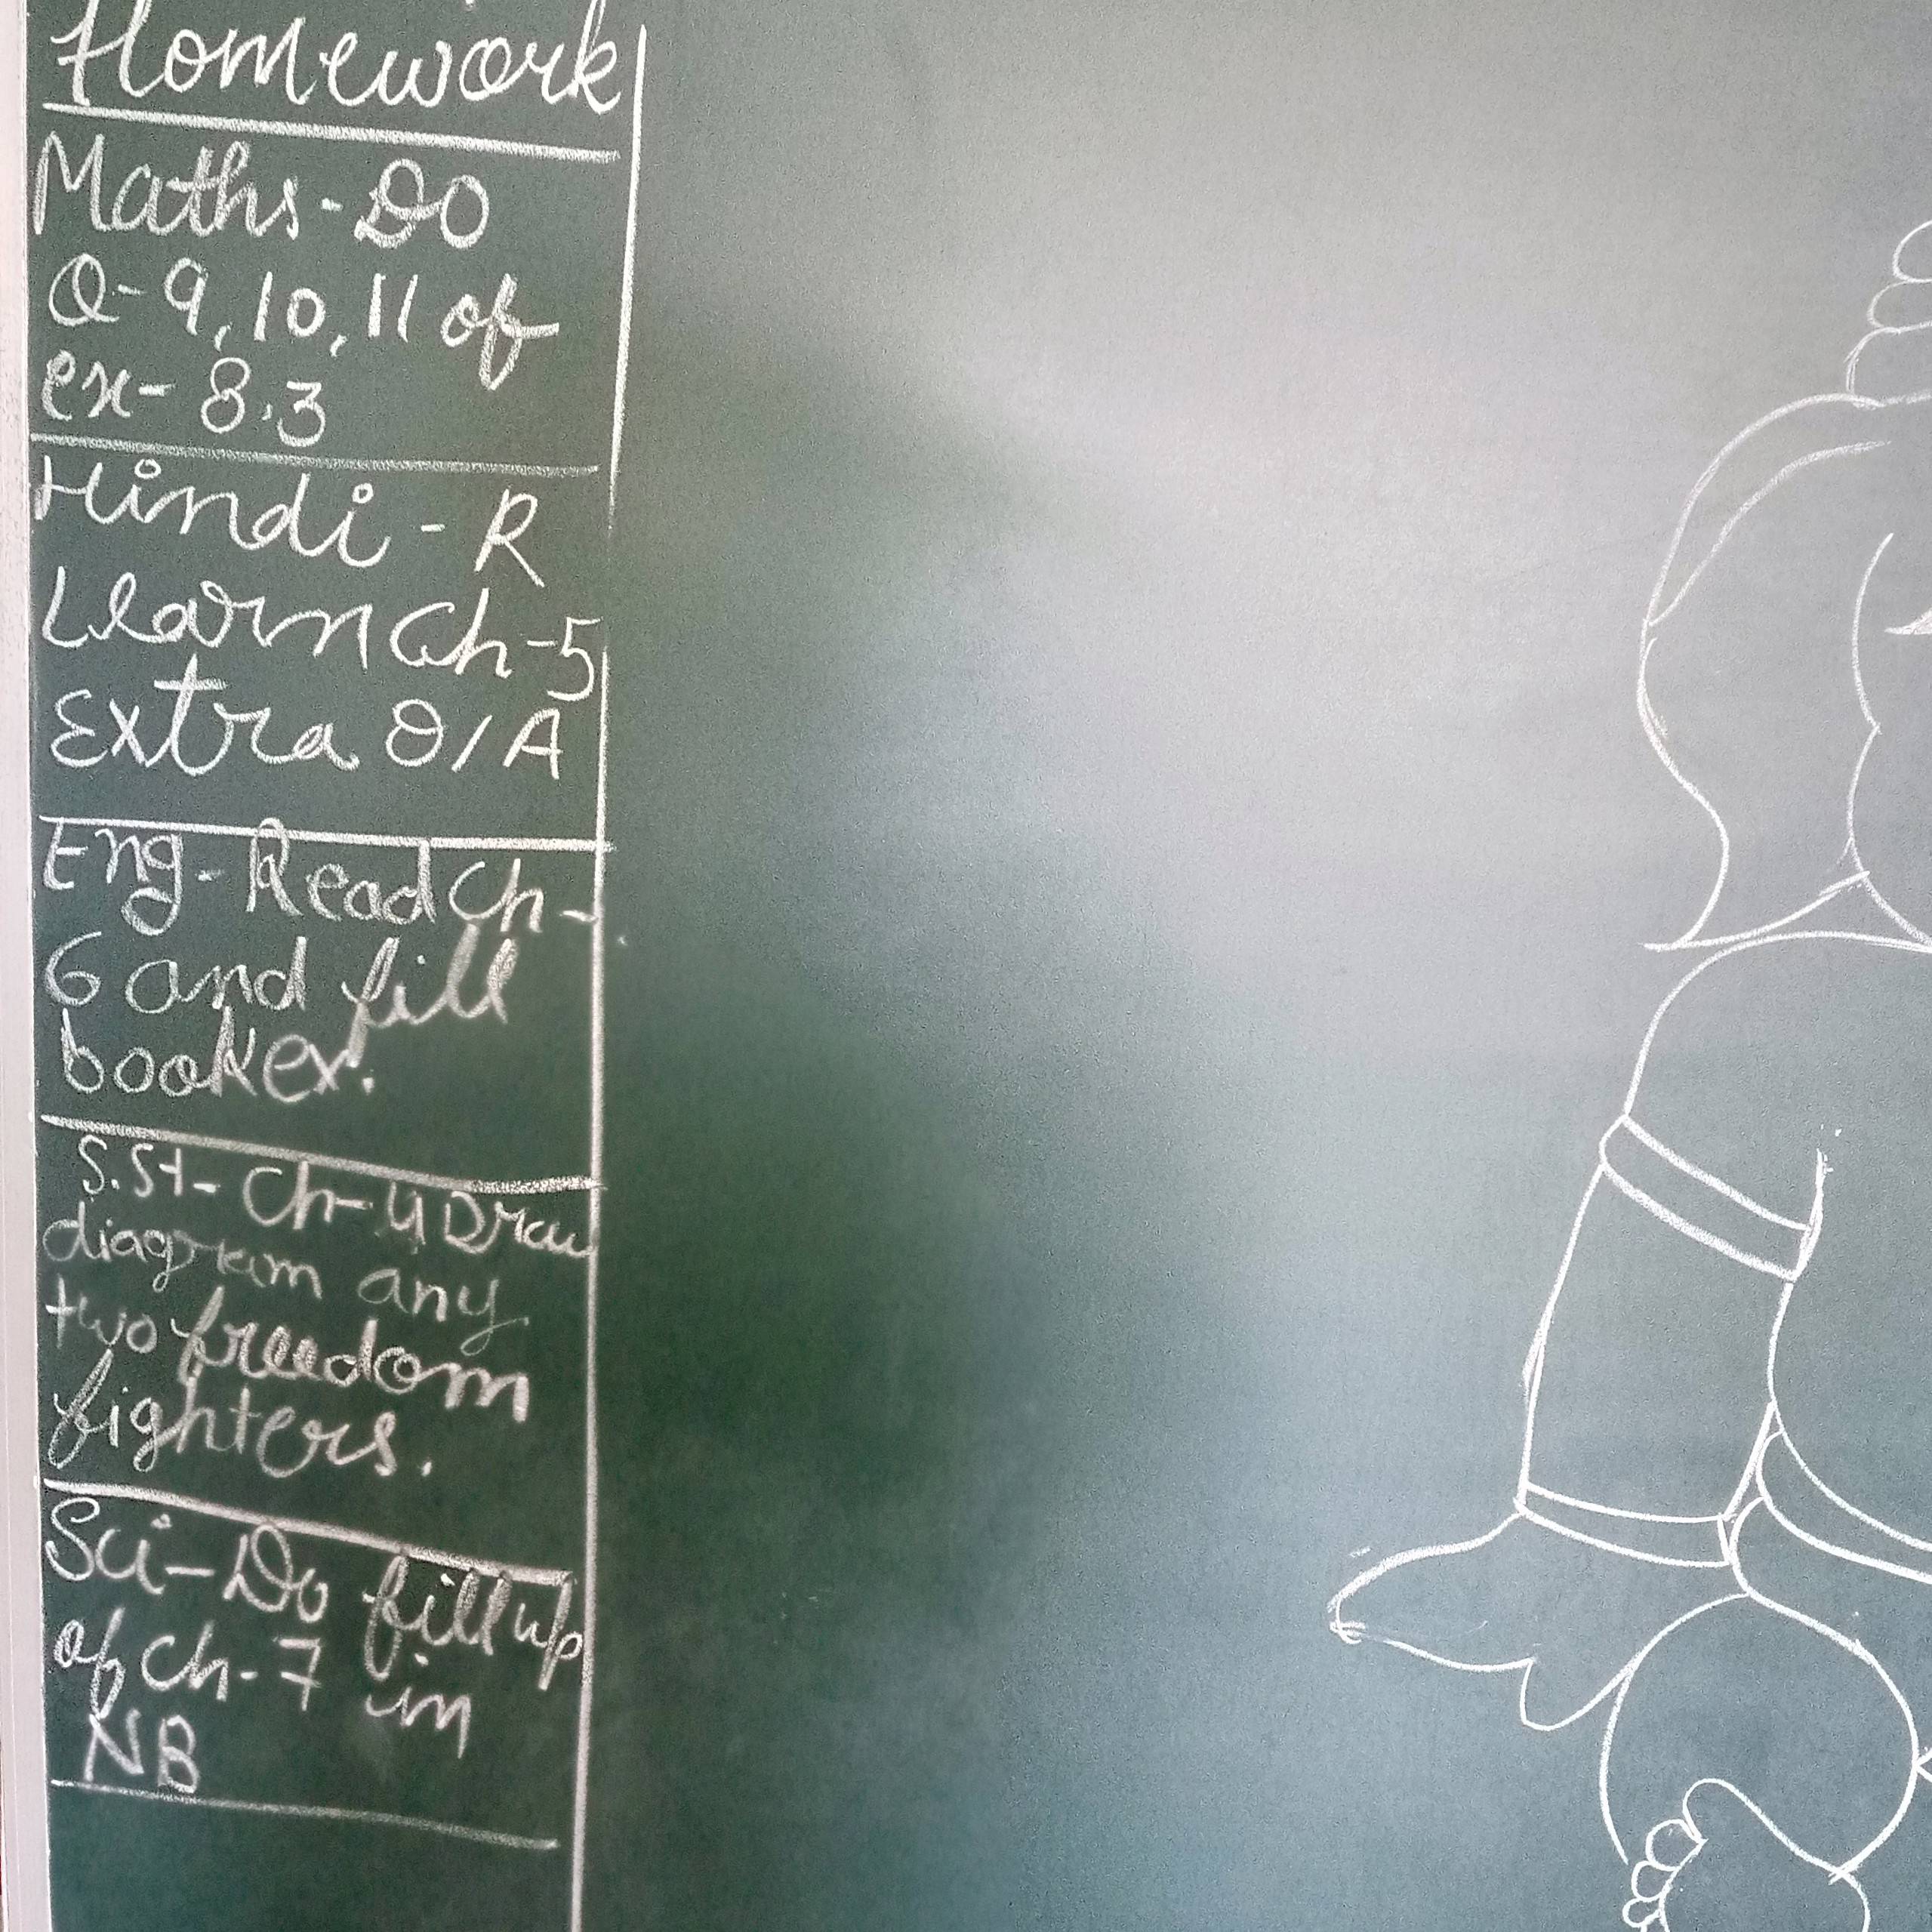 Homework
Maths - Do
Q- 9, 10, 11 of
ex- 8.3
Hindi - R
Learn Ch-5
Extra Q/A
Eng- Read Ch-
6 and fill
book ex.
S.St- Ch-4 Draw
diagram any
two freedom
fighters.
Sci - Do fill up
of Ch- 7 in
NB